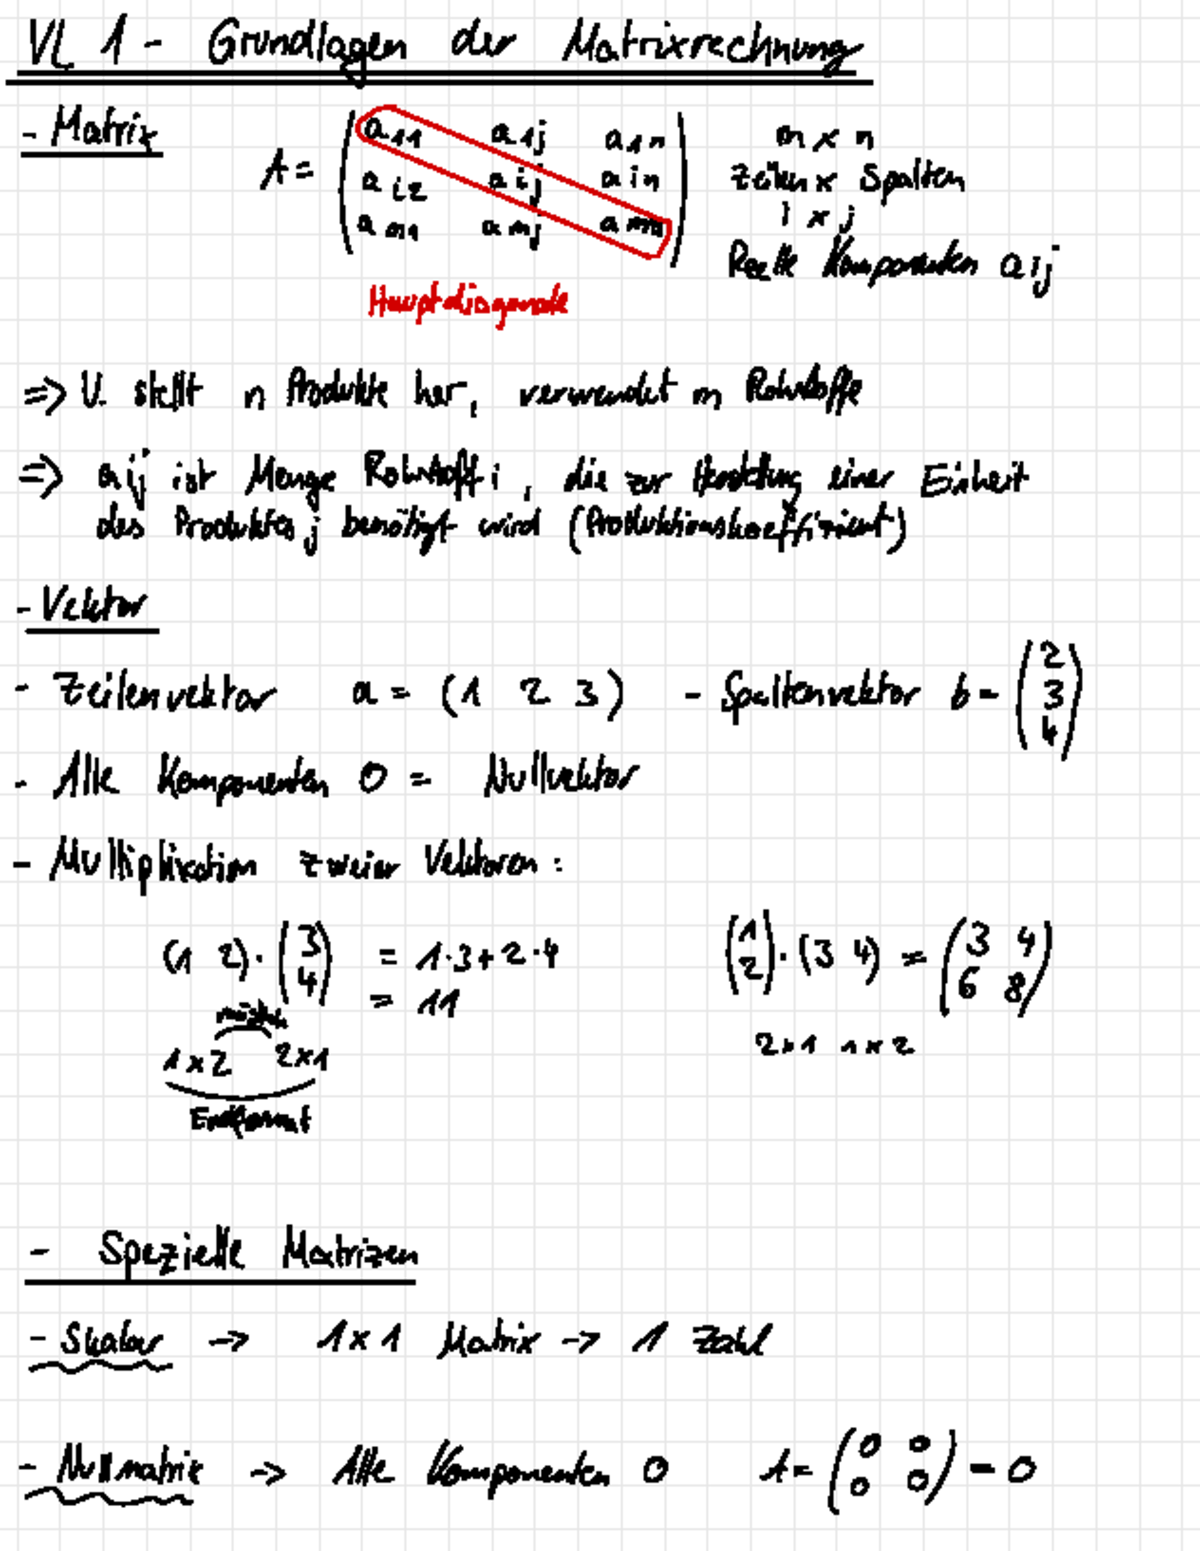 VL 1 - Grundlagen der Matrixrechnung
- Matrix
A = ( a11 a1j a1n
ai2 aij ain
am1 amj amn )
m x n
Zeilen x Spalten
i x j
Reelle Komponenten aij
Hauptdiagonale
=> U. stellt n Produkte her, verwendet m Rohstoffe
=> aij ist Menge Rohstoff i, die zur Herstellung einer Einheit
des Produktes j benötigt wird (Produktionskoeffizient)
- Vektor
- Zeilenvektor a = (1 2 3) - Spaltenvektor b = (2 3 4)
- Alle Komponenten 0 = Nullvektor
- Multiplikation zweier Vektoren:
(1 2) · (3 4) = 1·3+2·4
= 11
möglich
1x2 2x1
Endformat
(1 2) · (3 4) = (3 4
6 8)
2x1 1x2
- Spezielle Matrizen
- Skalar -> 1x1 Matrix -> 1 Zahl
- Nullmatrix -> Alle Komponenten 0 A = (0 0
0 0) = 0